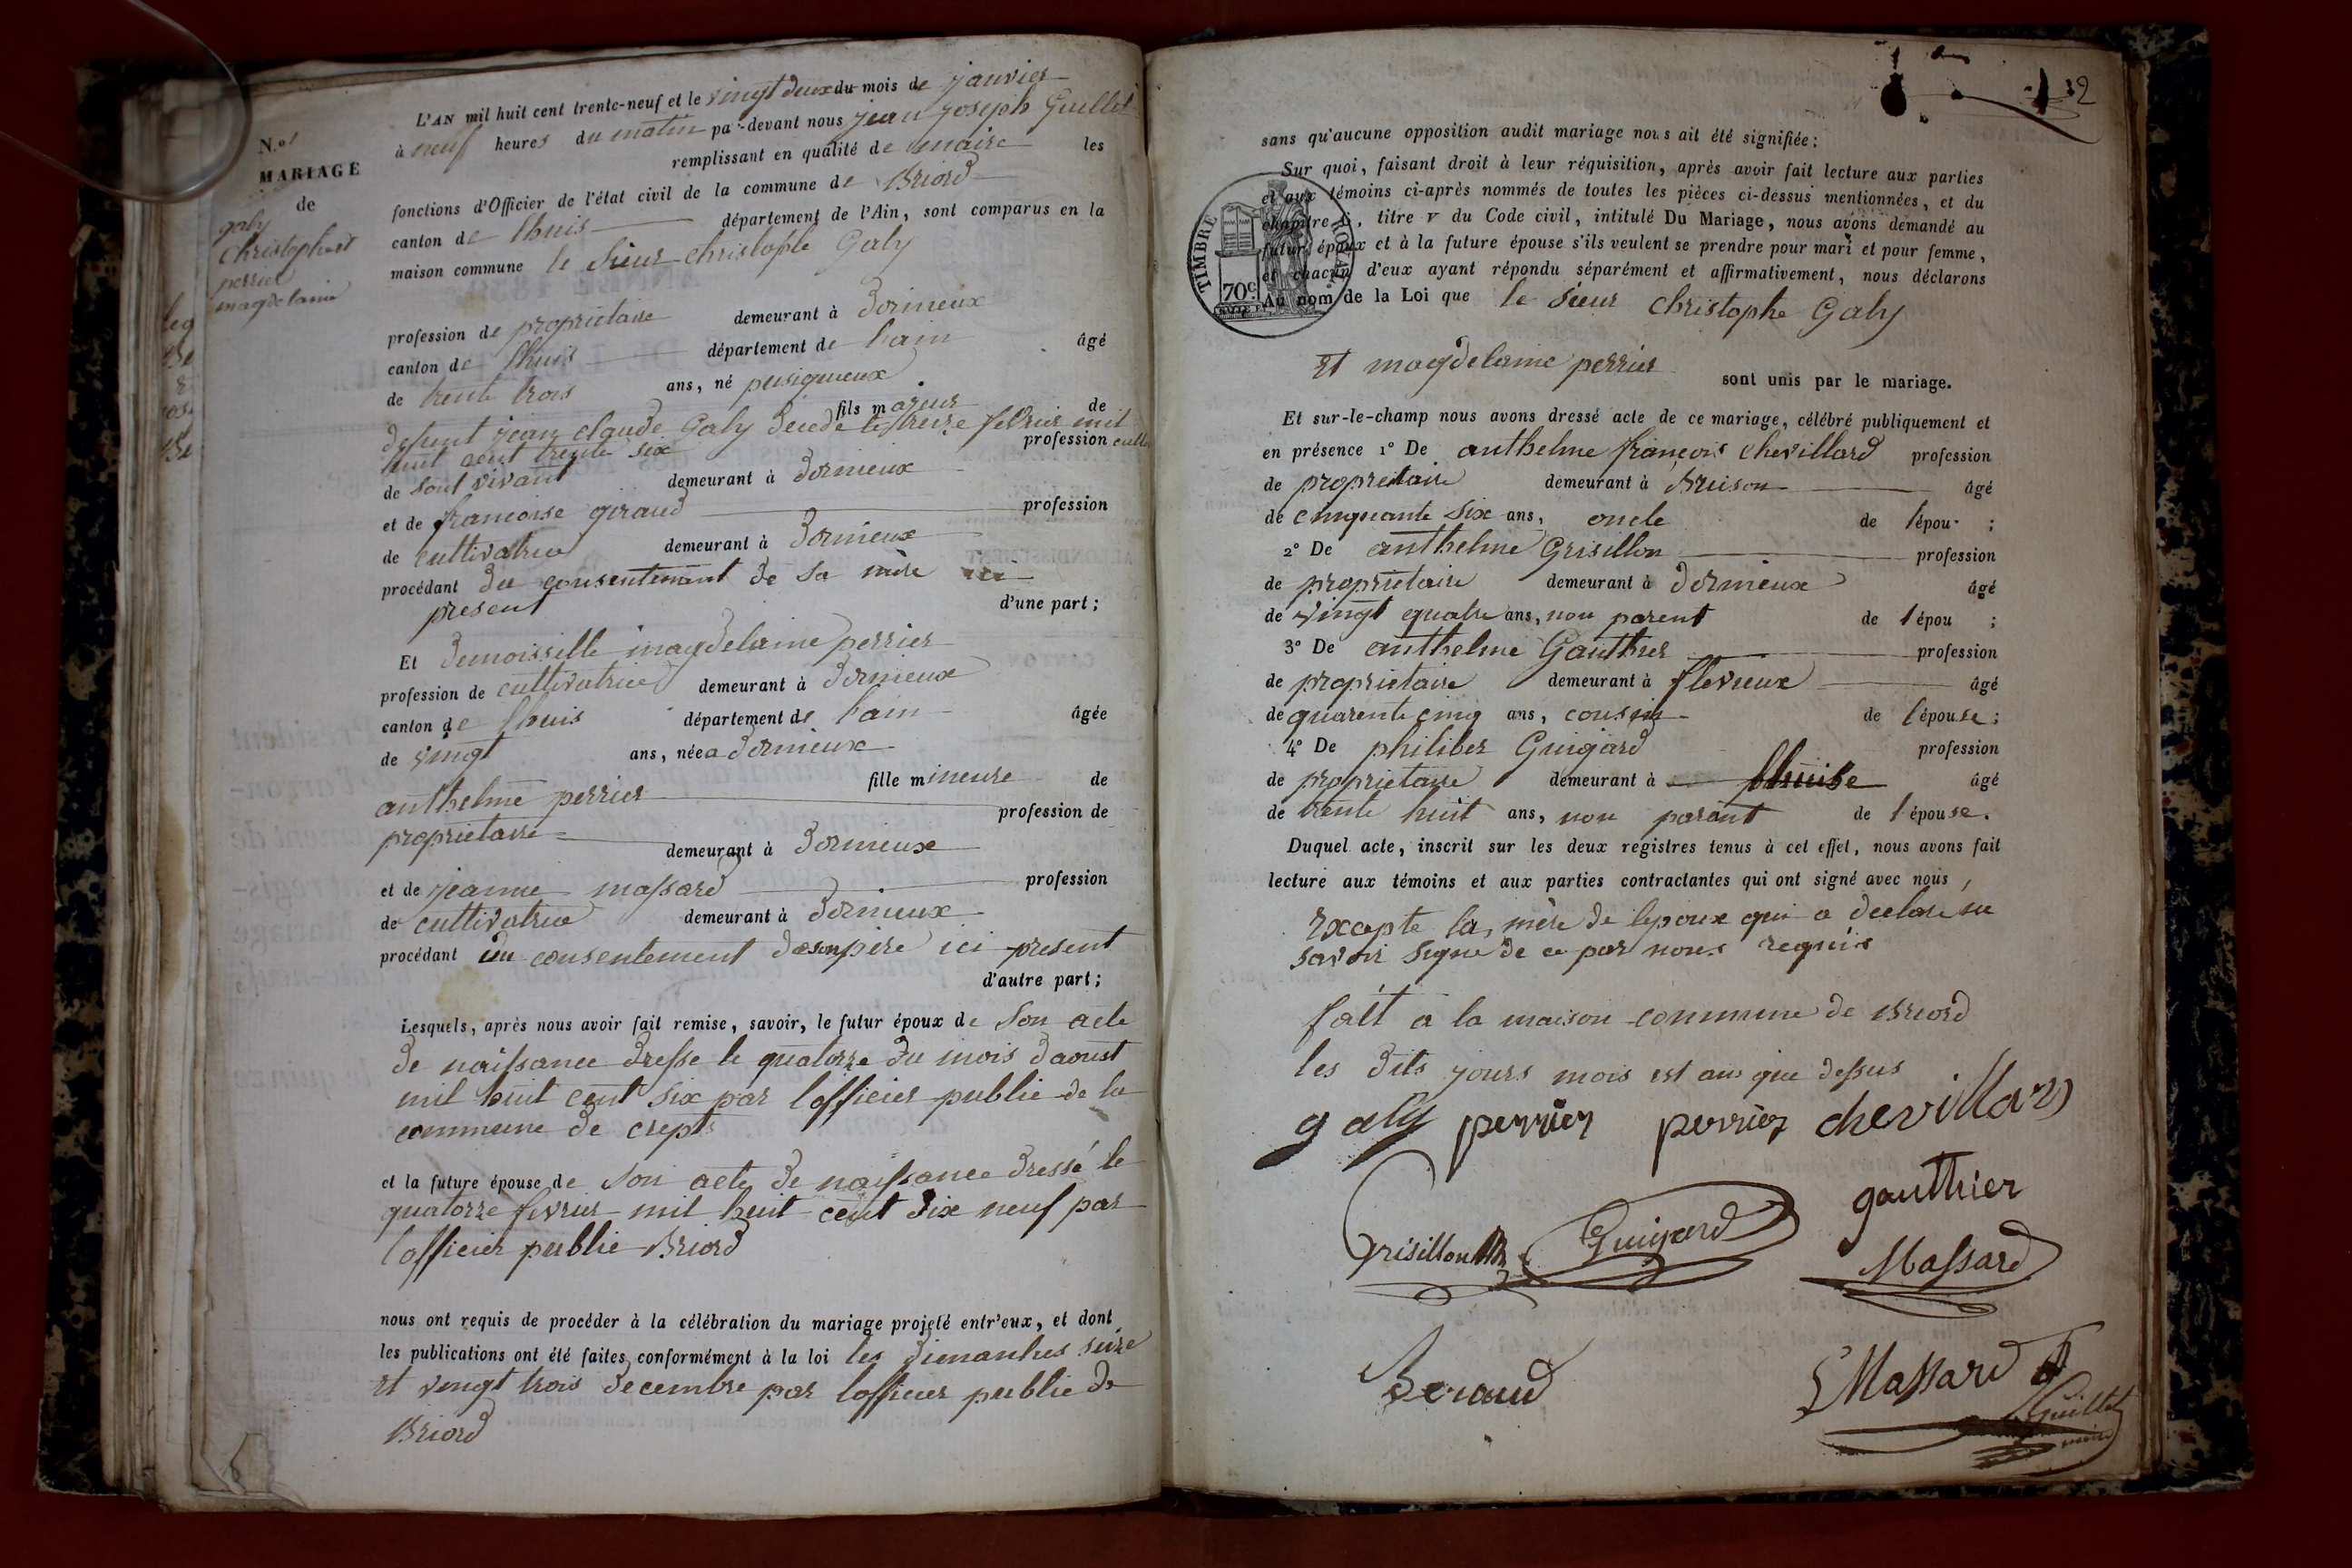 N.o 1
MARIAGE
de
galy
Christophe et
perrier
magdelaine
L'AN mil huit cent trente-neuf et le vingt deux du mois de janvier
à neuf heures du matin par-devant nous jean joseph Guillet
remplissant en qualité de maire les
fonctions d'Officier de l'état civil de la commune de Briord
canton de lhuis département de l'Ain, sont comparus en la
maison commune le sieur christophe Galy
profession de proprietaire demeurant à Dornieux
canton de lhuis département de lain âgé
de trente trois ans, né
fils majeur de
defunt jean claude Galy decede le treize fevrier mil
huit cent trente six profession
de sont vivant demeurant à Dornieux
et de francoise giraud profession
de cultivatrice demeurant à Dornieux
procédant du consentement de sa mère ici
present d'une part;
Et Demoisselle magdelaine perrier
profession de cultivatrice demeurant à Dornieux
canton de lhuis département de lain âgée
de vingt ans, née a Dornieux
fille mineure de
anthelme perrier profession de
proprietaire
demeurant à Dornieux
et de jeanne massard profession
de cultivatrice demeurant à Dornieux
procédant du consentement de son pire ici present
d'autre part;
Lesquels, après nous avoir fait remise, savoir, le futur époux de son acte
de naissance dresse le quatorze du mois daoust
mil huit cent six par lofficier public de la
commune de crept
et la future épouse de son acte de naissance dressé le
quatorze fevrier mil huit cent dix neuf par
lofficier public Briord
nous ont requis de procéder à la célébration du mariage projeté entr'eux, et dont
les publications ont été faites conformément à la loi les dimanches seize
et vingt trois decembre par lofficier public de
Briord
2
sans qu'aucune opposition audit mariage nous ait été signifiée:
Sur quoi, faisant droit à leur réquisition, après avoir fait lecture aux parties
et aux témoins ci-après nommés de toutes les pièces ci-dessus mentionnées, et du
chapitre 6, titre V du Code civil, intitulé Du Mariage, nous avons demandé au
futur époux et à la future épouse s'ils veulent se prendre pour mari et pour femme,
et chacun d'eux ayant répondu séparément et affirmativement, nous déclarons
Au nom de la Loi que le sieur christophe Galy
TIMBRE ROYAL
70c
et magdelaine perrier
sont unis par le mariage.
Et sur-le-champ nous avons dressé acte de ce mariage, célébré publiquement et
en présence 1° De anthelme françois chevillard profession
de proprietaire demeurant à Brison âgé
de cinquante six ans, oncle de l'épou ;
2° De anthelme Grisillon profession
de proprietaire demeurant à Dornieux âgé
de vingt quatre ans, non parent de l'épou ;
3° De anthelme Gauthier profession
de proprietaire demeurant à flevieux âgé
de quarente cinq ans, cousin de l'épouse;
4° De philiber Guigard profession
de proprietaire demeurant à âgé
de trente huit ans, non parant de l'épouse.
Duquel acte, inscrit sur les deux registres tenus à cet effet, nous avons fait
lecture aux témoins et aux parties contractantes qui ont signé avec nous,
Excepte la mère de lepoux qui a declare ne
savoir signe de ce par nous requis
fait a la maison commune de Briord
les dits jours mois est ans que dessus
galy perrier perrier chevillard
gauthier
Grisillon Guigard
Massard
Beraud
Massard
Guillet
maire